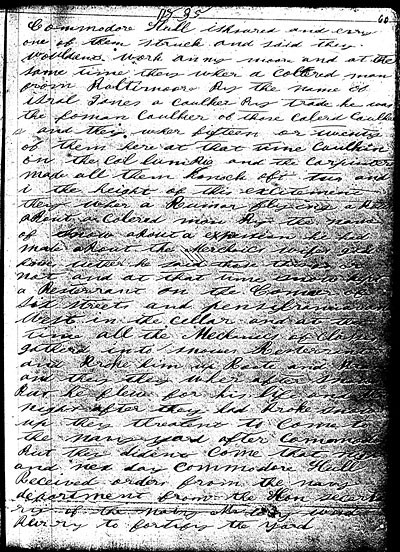 pg 95
60
Commodore Hull ishoured and evry
one of them struck and said they
wouldent work anny moor and at the
same time they wher a Collered man
from Baltimoore By the name of
Israel Jones a Caulker By trade he was
the foman Caulker of those Colerd Caulkers
and they wher fifteen or twenty
of them here at that time Caulkin
on the Columbia and the Carpinters
made all them knock oft tus and
i the height of this excitement
they wher a Rumor flying
about a Colered man By the name
of Snow about a expression he had
made about the Mechanics
said that
not and at that time Snow
a Resterrant on the Corner
Six streets and pensylvania
West in the cellar and at the
time all the Mechanics of
gathered into
and Broke him up Roote and
and they they wher after Snow
But he flew for his life and
night after they had broke
up they threatent to Come to
the navy yard after Commodore
But they dident Come that night
and nex day Commodore Hull
Received orders from the navy
department from the Hon secreta
ry of the navy
to fortify the yard